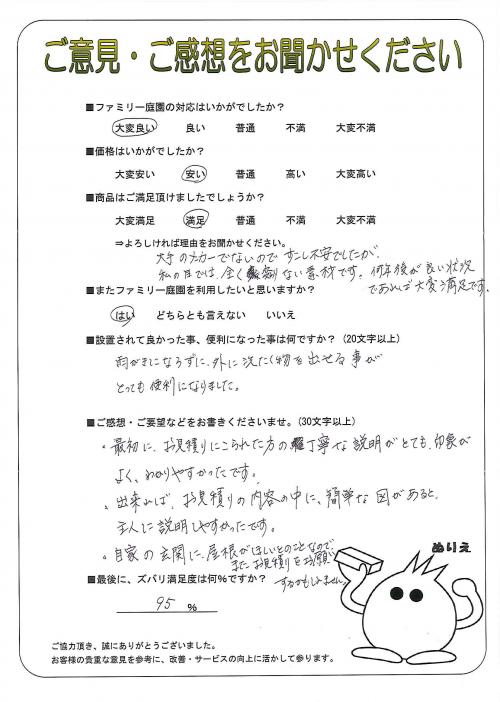 ご意見・ご感想をお聞かせください
■ファミリー庭園の対応はいかがでしたか？
大変良い 良い 普通 不満 大変不満
■価格はいかがでしたか？
大変安い 安い 普通 高い 大変高い
■商品はご満足頂けましたでしょうか？
大変満足 満足 普通 不満 大変不満
⇒よろしければ理由をお聞かせください。
大手のメーカーでないので すこし不安でしたが、
私の目では、全く 劣らない素材です。何年後が良い状況
であれば大変満足です。
■またファミリー庭園を利用したいと思いますか？
はい どちらとも言えない いいえ
■設置されて良かった事、便利になった事は何ですか？（20文字以上）
雨がきにならずに、外に洗たく物を出せる事が
とっても便利になりました。
■ご感想・ご要望などをお書きくださいませ。（30文字以上）
・最初に、お見積りにこられた方の丁寧な説明がとても、印象が
よく、わかりやすかったです。
・出来れば、お見積りの内容の中に、簡単な図があると、
主人に説明しやすかったです。
・自家の玄関に、屋根がほしいとのことなので、
また お見積りをお願い
するかもしれません。
ぬりえ
■最後に、ズバリ満足度は何％ですか？
95 ％
ご協力頂き、誠にありがとうございました。
お客様の貴重な意見を参考に、改善・サービスの向上に活かして参ります。